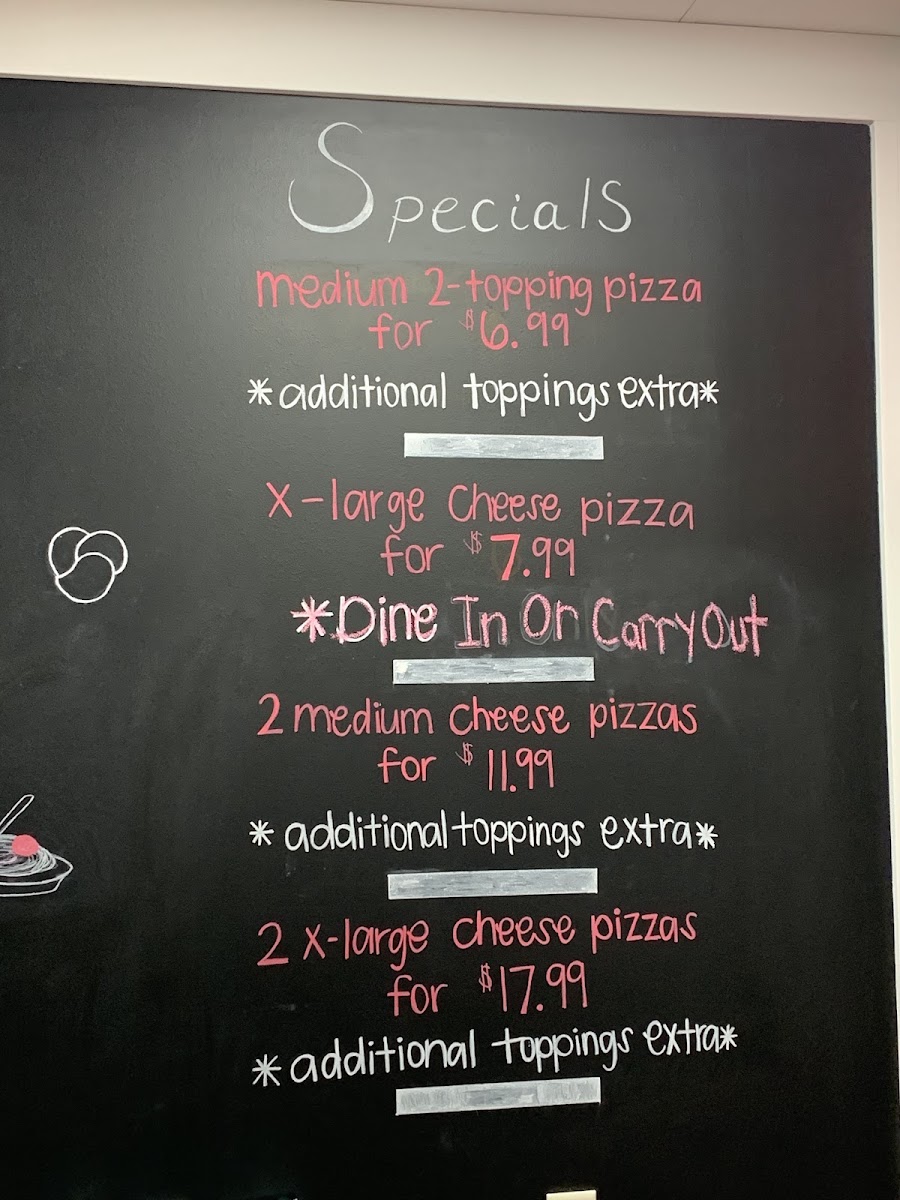 Specials
medium 2-topping pizza
for $6.99
*additional toppings extra*
x-large cheese pizza
for $7.99
*Dine In Or CarryOut
2 medium cheese pizzas
for $11.99
*additional toppings extra*
2 x-large cheese pizzas
for $17.99
*additional toppings extra*